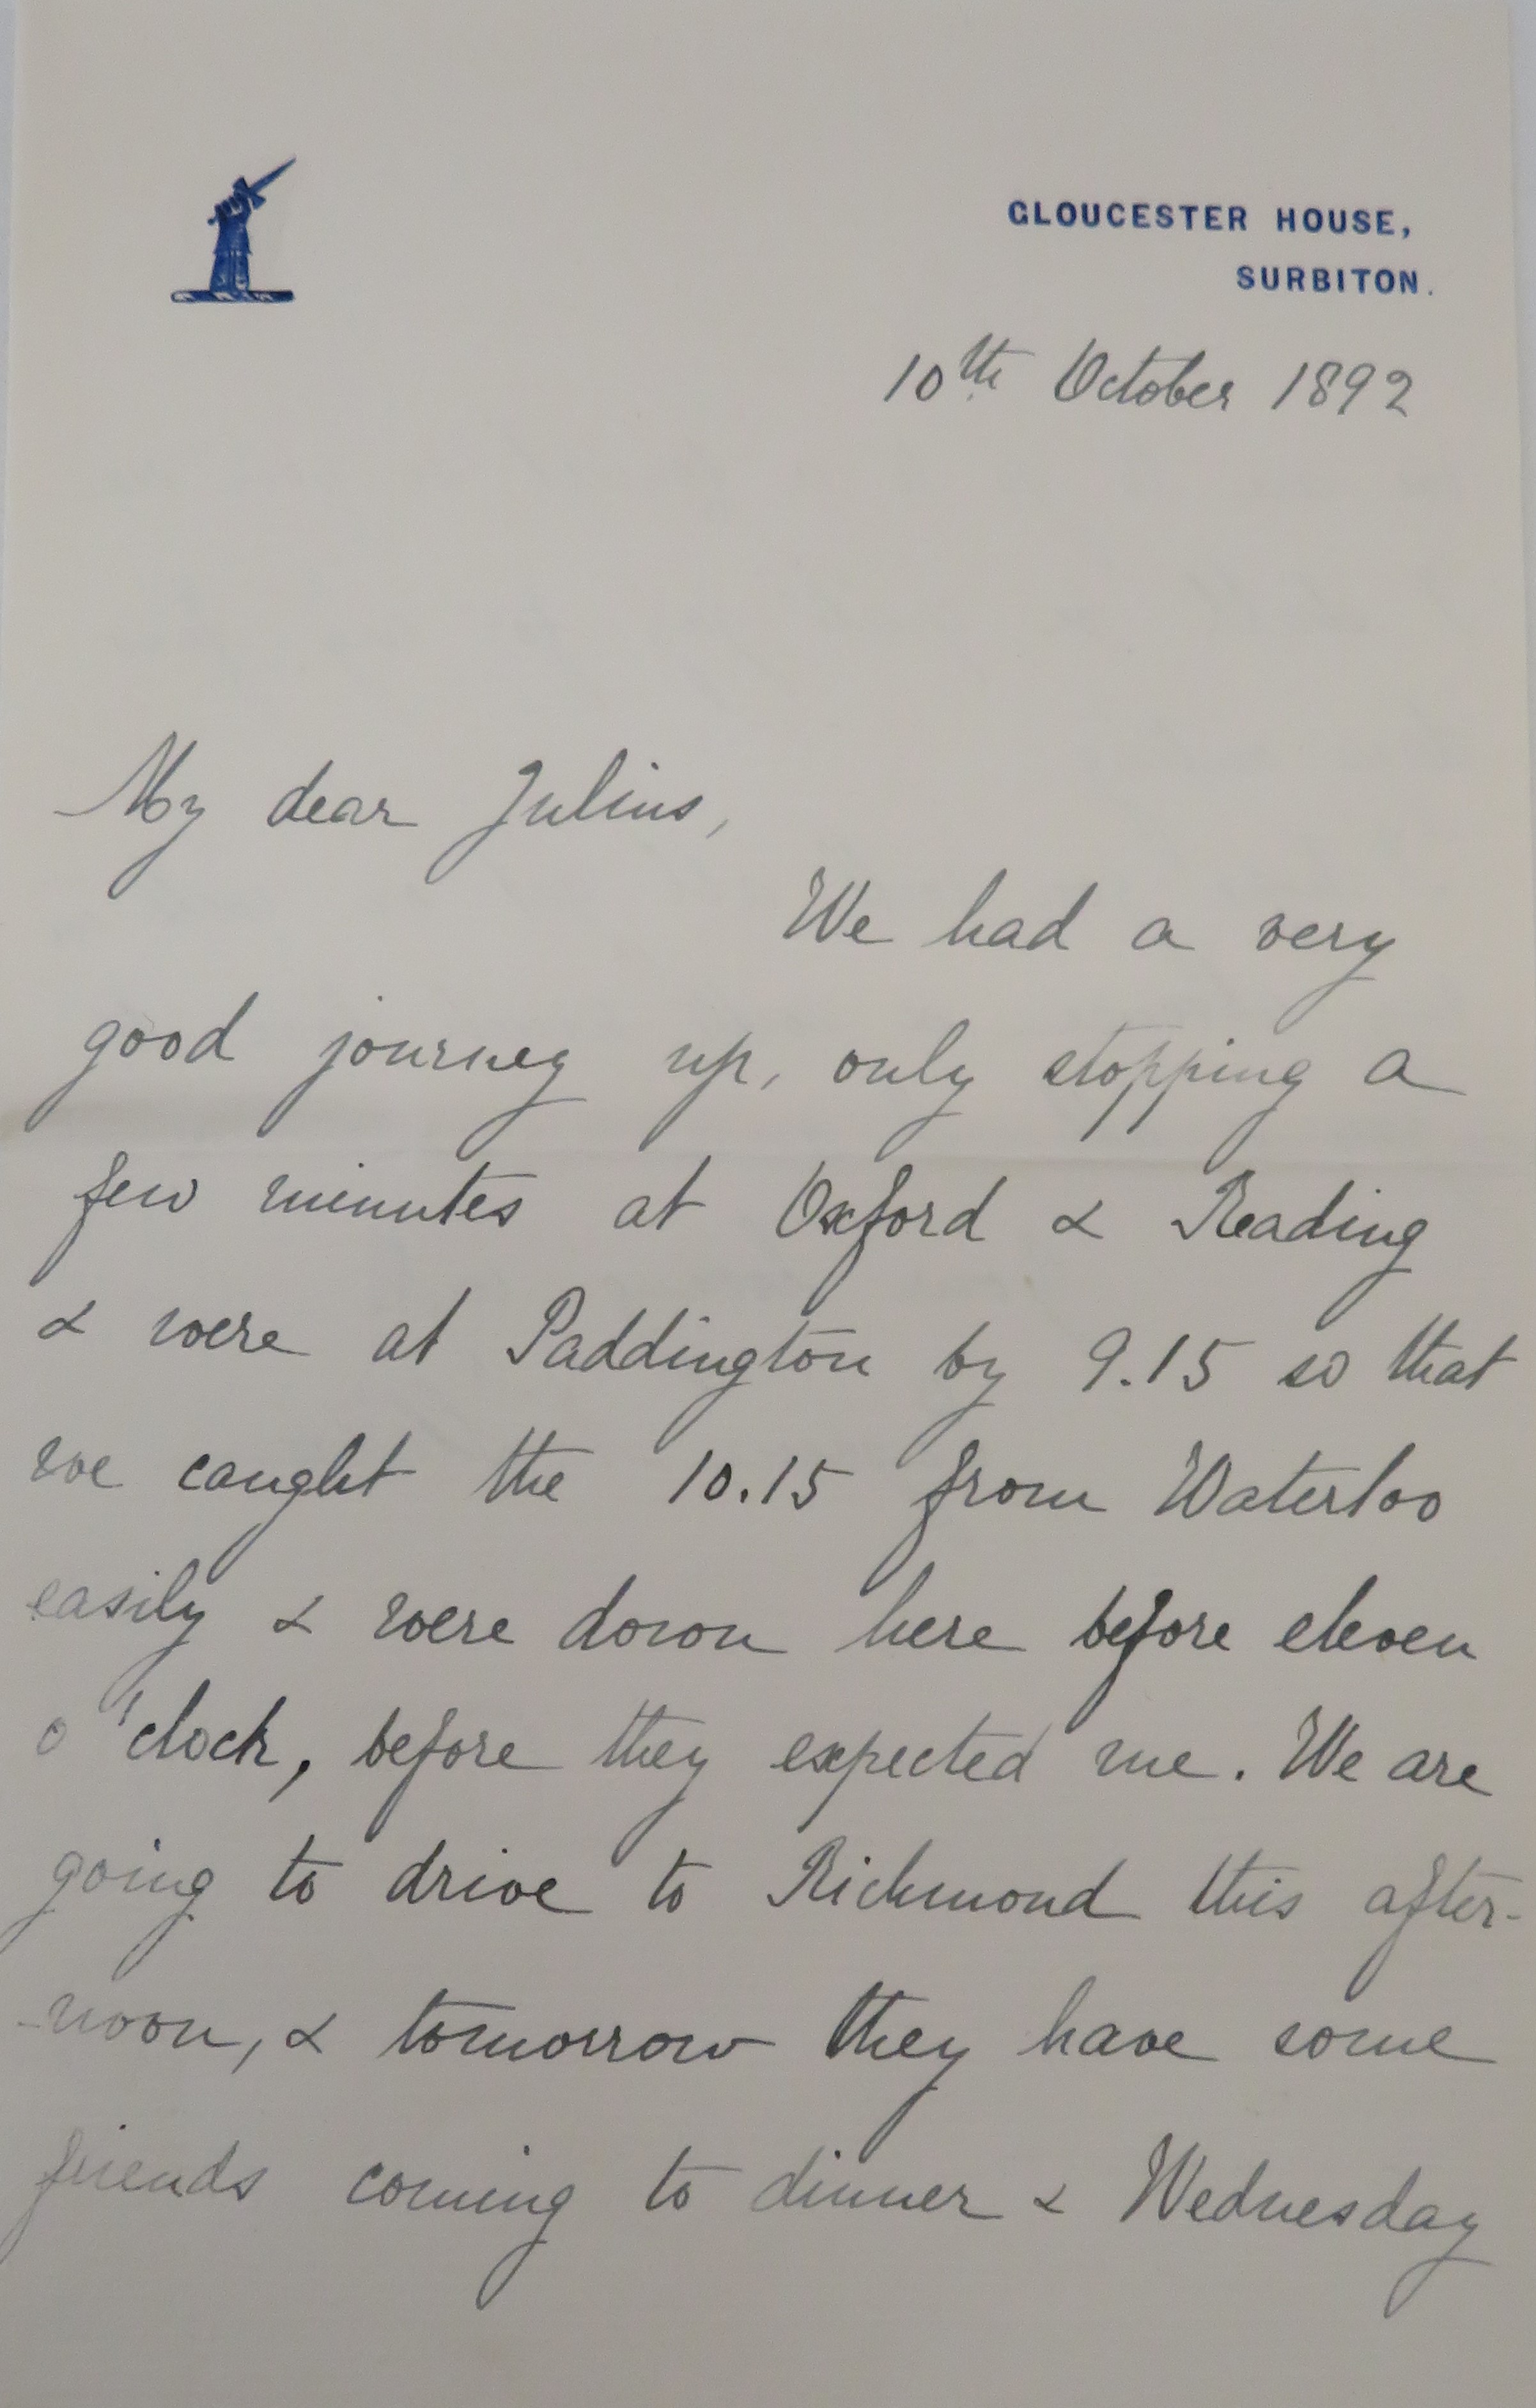 GLOUCESTER HOUSE,
SURBITON.
10th October 1892
My dear Julius,
We had a very
good journey up, only stopping a
few minutes at Oxford & Reading
& were at Paddington by 9.15 so that
we caught the 10.15 from Waterloo
easily & were down here before eleven
o'clock, before they expected me. We are
going to drive to Richmond this after-
-noon, & tomorrow they have some
friends coming to dinner & Wednesday